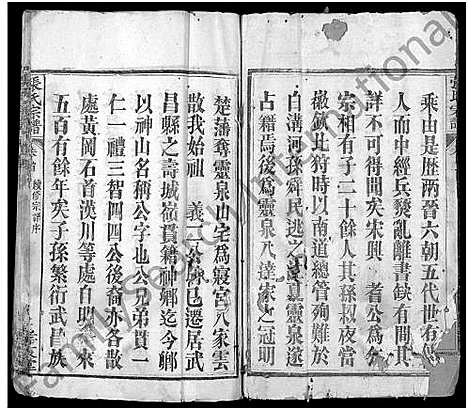 乘由是歷兩晉六朝五代世有傳
而中經兵燹亂離書缺有間其
詳不可得聞矣宋興 者公為靈
宗相有子二十餘人其孫叔夜當
徽欽北狩時以南道總管殉難於
白溝河孫舜民逃之江夏靈泉遂
占籍焉後為靈泉八達家之冠明
楚藩奪靈泉山宅為寢宮八家雲
散我始祖 義一公併已遷居武
昌縣之壽城嶺貫籍神鄉迄今鄉
以神山名稱公字也公兄弟貫一
仁一禮三智四四公後裔亦各散
處黃岡石首漢川等處自明以來
五百有餘年矣子孫繁衍武昌族
張氏宗譜
卷首
續修宗譜序